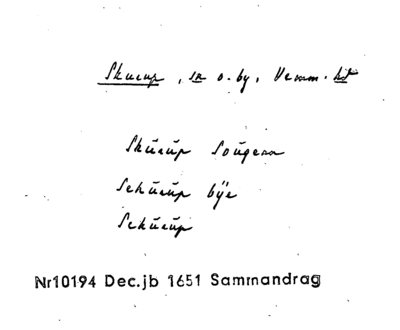 Skurup, sn o. by, Vemm. hd
Skŭrŭp Soŭgenn
Schŭrŭp bÿe
Schŭrŭp
Nr10194 Dec.jb 1651 Sammandrag